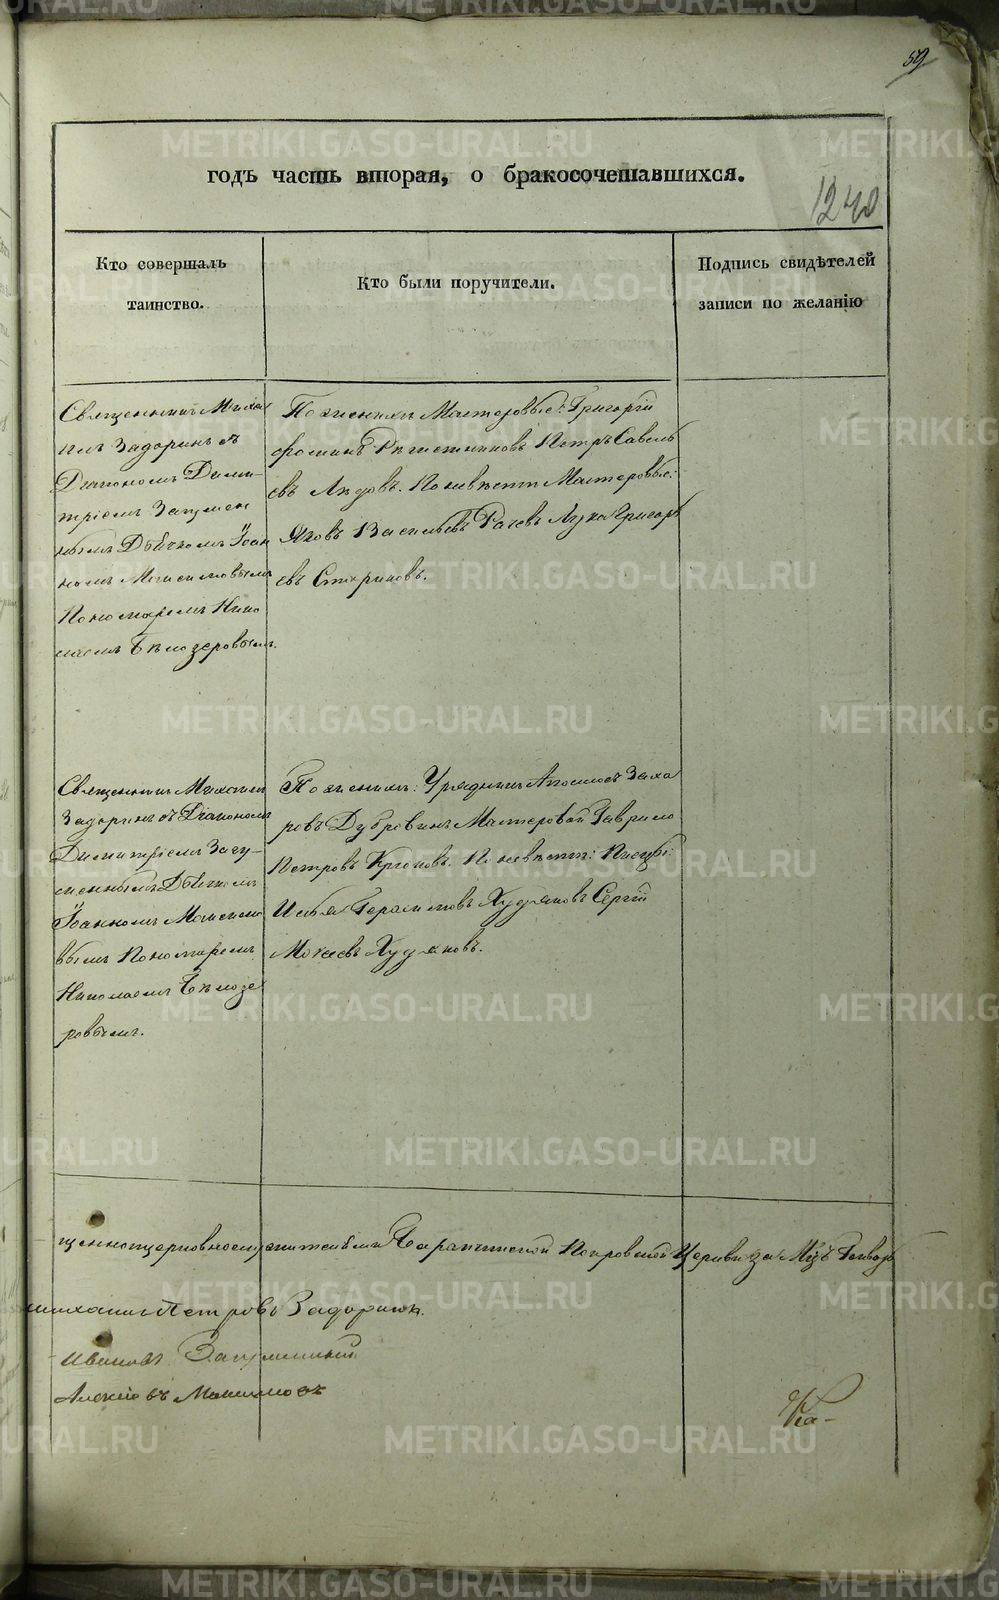 59
годъ часть вторая, о бракосочетавшихся.
1240
Кто совершалъ
таинство.
Кто были поручители.
Подпись свидѣтелей
записи по желанію
Священникъ Миха
илъ Задоринъ съ
Діакономъ Дими-
тріемъ Загумен
нымъ Дьячкомъ Іоан
номъ Максимовымъ
Пономаремъ Нико
лаемъ Бѣлозеровымъ.
По женихѣ Мастеровые: Григорій
Ѳоминъ Рѣшетниковъ Петръ Савель
евъ Лядовъ. По невѣстѣ Мастеровые:
Яковъ Васильевъ Рачевъ Лука Григорь
евъ Стариковъ.
Священникъ Михаилъ
Задоринъ съ Діакономъ
Димитріемъ Загу-
меннымъ Дьячкомъ
Іоанномъ Максимо
вымъ Пономаремъ
Николаемъ Бѣлозе
ровымъ.
По женихѣ: Урядникъ Аполлосъ Заха
ровъ Дубровинъ Мастеровой Гаврило
Петровъ Крюковъ. По невѣстѣ:
Илья Герасимовъ Худяковъ Сергій
Мокеевъ Худяковъ.
Баранчинской Покровской Церкви за Мцъ Генварь
Михаилъ Петровъ Задоринъ.
Ивановъ Загуменный
Алексіевъ Максимовъ
METRIKI.GASO-URAL.RU